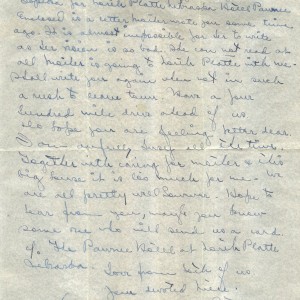 for North Platte Nebraska Hotel Pawnee
Enclosed is a letter Meiler wrote you some time
ago. It is almost impossible for her to write
as her vision is so bad she can not read at
all Meiler is going to North Platte with me
shall write you again when not in such
a rush to leave town. Have a four
hundred mile drive ahead of us
do hope you are feeling better dear.
I am awfully busy all the time.
Together with caring for Meiler & this
big house it is too much for me. We
are all pretty well otherwise. Hope to
hear from you, maybe you know
some one who will send us a card
of The Pawnee Hotel at North Platte
Nebraska.
Love from both of us
Your devoted